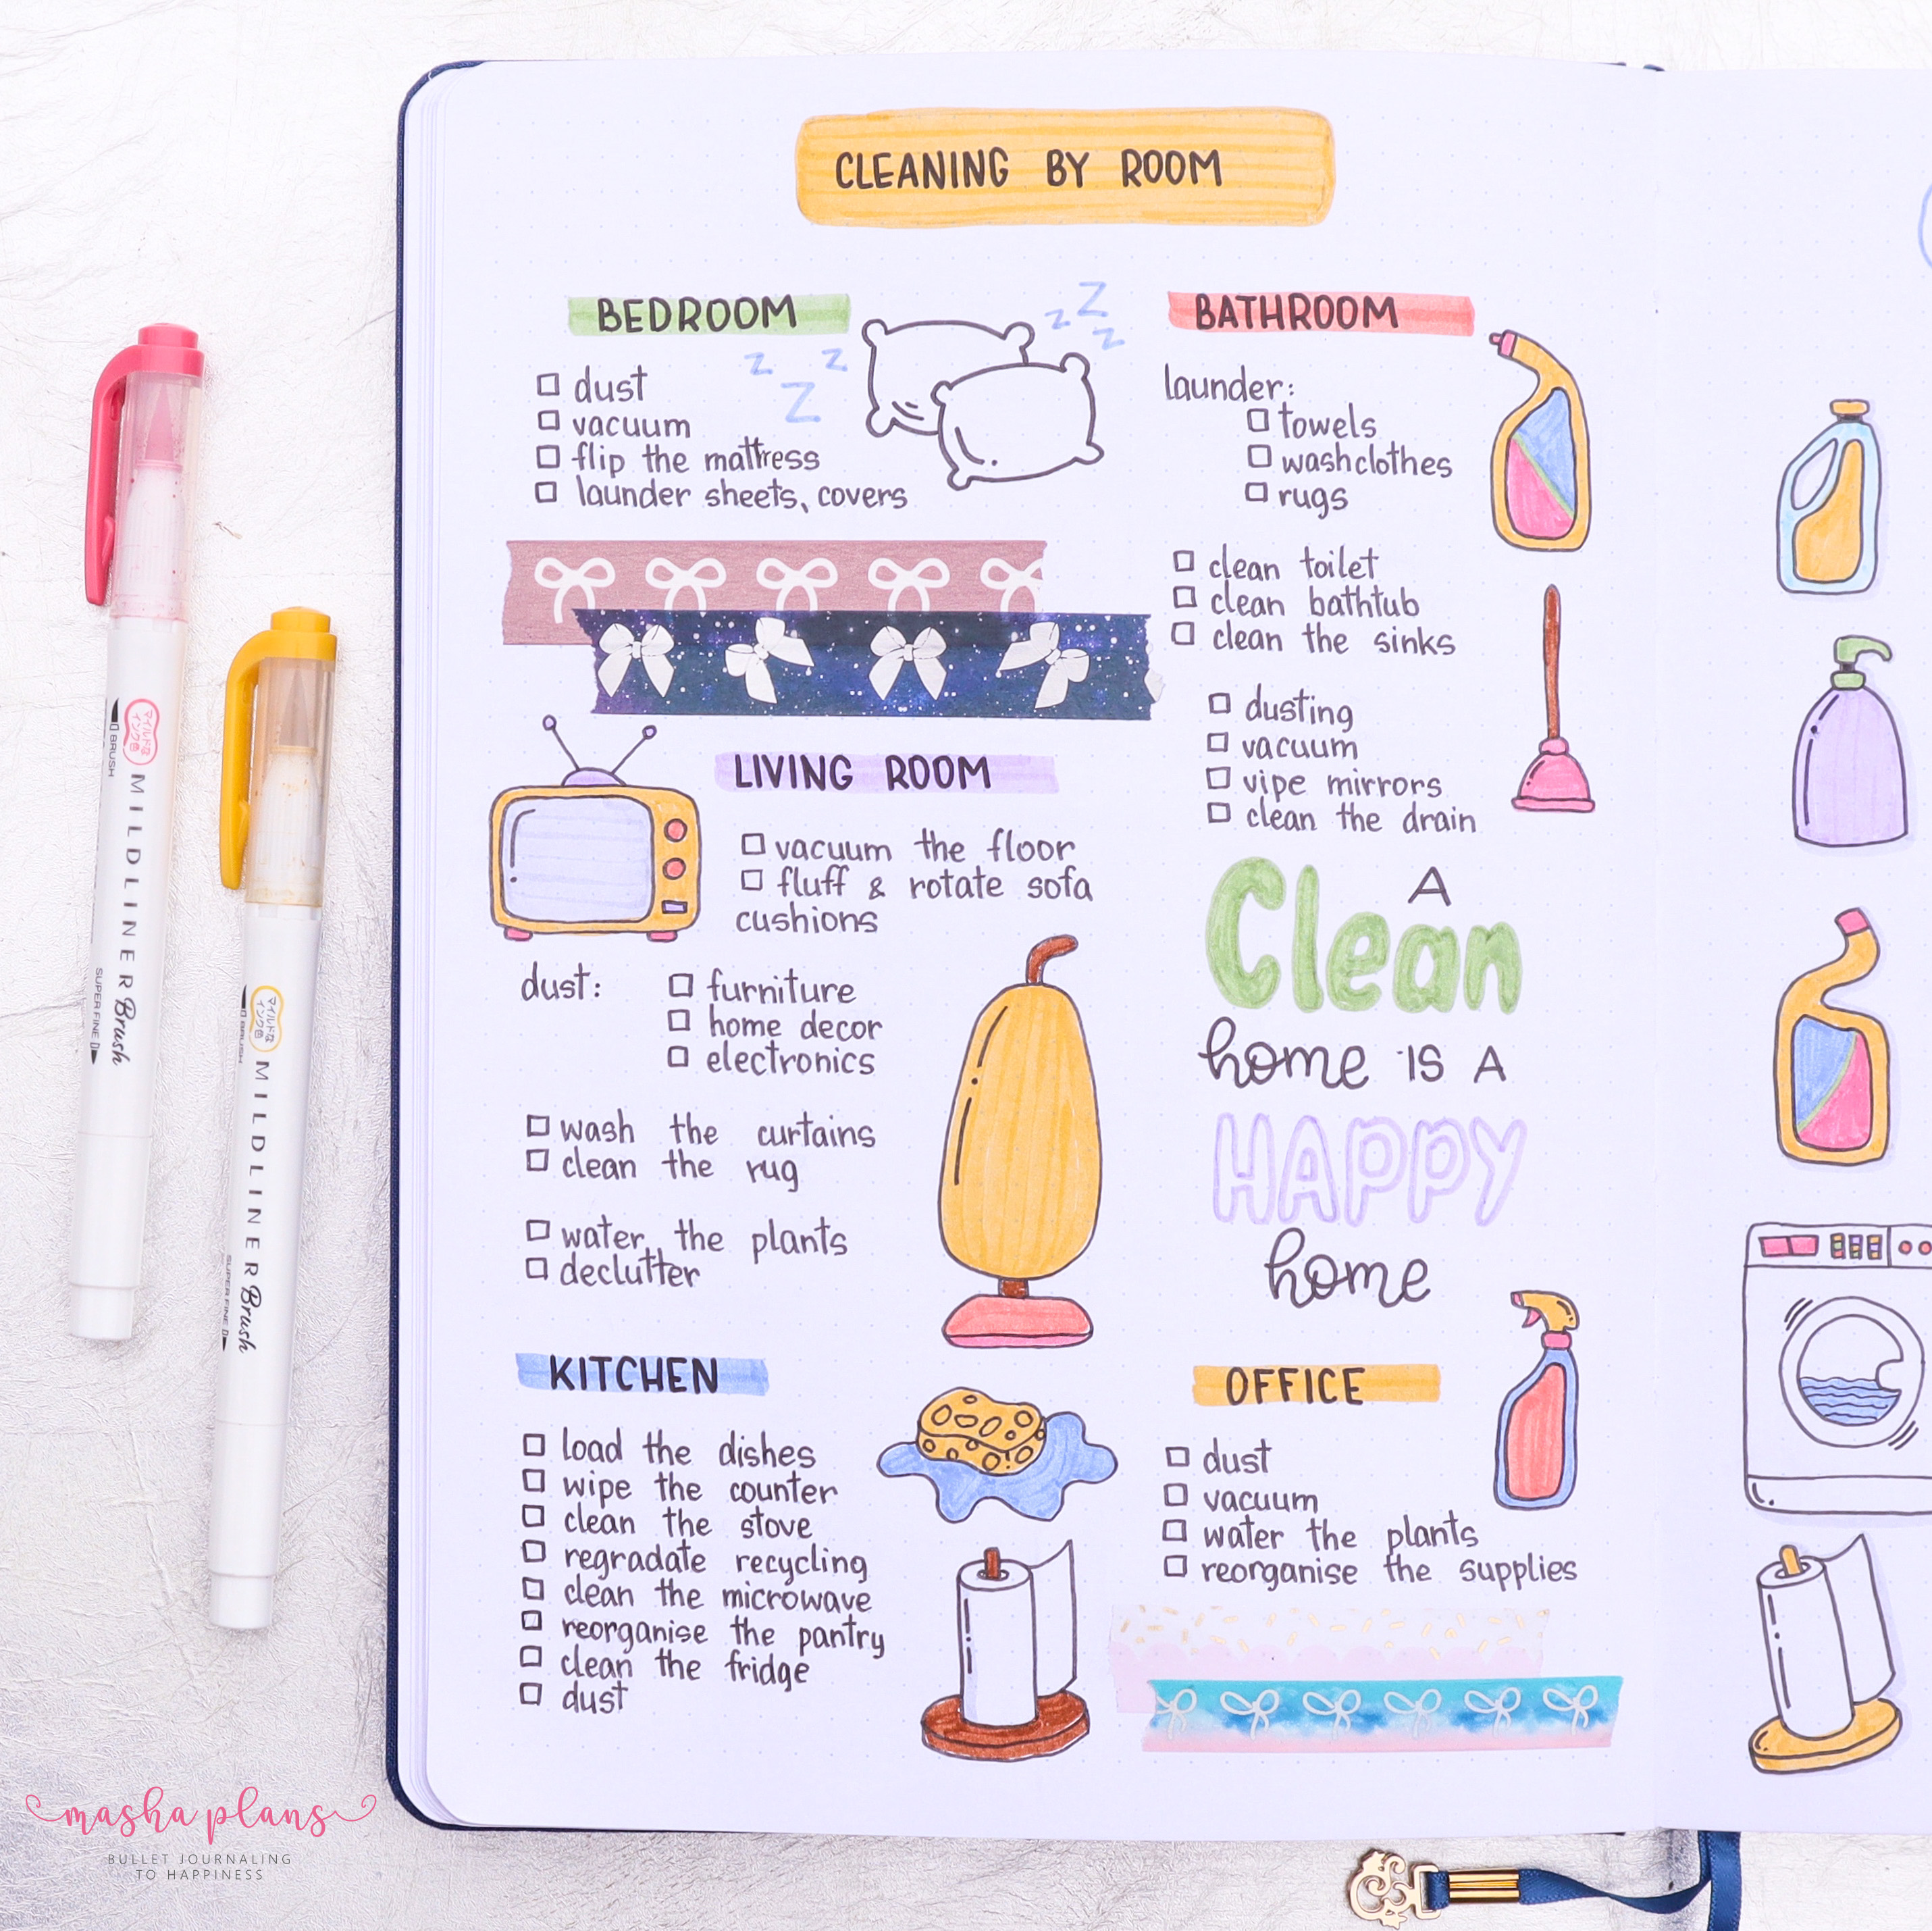 CLEANING BY ROOM
BEDROOM
z z z
z z z
☐ dust
☐ vacuum
☐ flip the mattress
☐ launder sheets, covers
LIVING ROOM
☐ vacuum the floor
☐ fluff & rotate sofa
cushions
dust: ☐ furniture
☐ home decor
☐ electronics
☐ wash the curtains
☐ clean the rug
☐ water the plants
☐ declutter
KITCHEN
☐ load the dishes
☐ wipe the counter
☐ clean the stove
☐ regradate recycling
☐ clean the microwave
☐ reorganise the pantry
☐ clean the fridge
☐ dust
BATHROOM
launder:
☐ towels
☐ washclothes
☐ rugs
☐ clean toilet
☐ clean bathtub
☐ clean the sinks
☐ dusting
☐ vacuum
☐ vipe mirrors
☐ clean the drain
A
Clean
home IS A
HAPPY
home
OFFICE
☐ dust
☐ vacuum
☐ water the plants
☐ reorganise the supplies
マイルドな
インク色
BRUSH MILDLINER Brush SUPER FINE
マイルドな
インク色
BRUSH MILDLINER Brush SUPER FINE
masha plans
BULLET JOURNALING
TO HAPPINESS